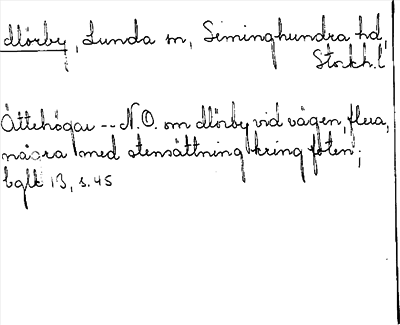 Mörby, Lunda sn, Seminghundra hd,
Stockh.l
Ättehögar -- N.O. om Mörby vid vägen, flera,
några med stensättning kring foten;
bglk 13, s. 45